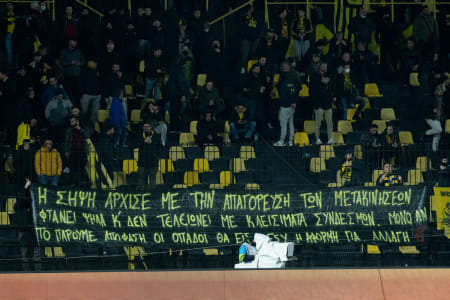 Η ΣΗΨΗ ΑΡΧΙΣΕ ΜΕ ΤΗΝ ΑΠΑΓΟΡΕΥΣΗ ΤΩΝ ΜΕΤΑΚΙΝΗΣΕΩΝ
ΦΤΑΝΕΙ ΨΗΛΑ Κ ΔΕΝ ΤΕΛΕΙΩΝΕΙ ΜΕ ΚΛΕΙΣΙΜΑΤΑ ΣΥΝΔΕΣΜΩΝ ΜΟΛΟ ΑΝ
ΤΟ ΠΑΡΟΥΜΕ ΑΠΟΦΑΣΗ ΟΙ ΟΠΑΔΟΙ ΘΑ Η ΑΦΟΡΜΗ ΓΙΑ ΑΛΛΑΓΗ